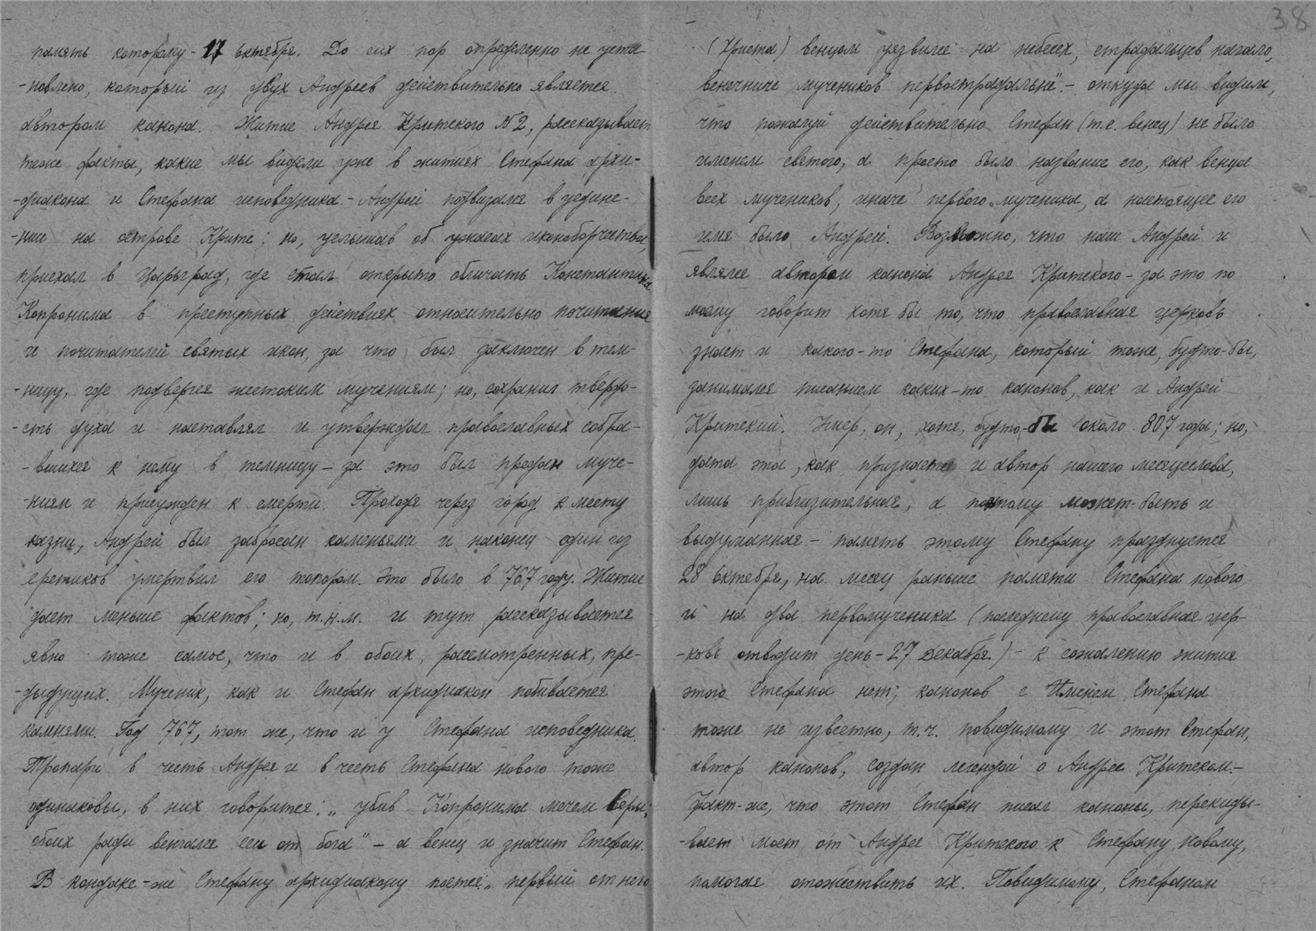 память которому - 17 октября. До сих пор определенно не уста-
-новлено, который из двух Андреев действительно является
автором канона. Житие Андрея Критского №2, рассказывает
теже факты, какие мы видели уже в житиях Стефана архи-
-диакона и Стефана исповедника. - Андрей подвизался в уедине-
-нии на острове Крите; но, услышав об ужасах иконоборчества,
приехал в Царьград, где стал открыто обличать Константина
Копронима в преступных действиях относительно почитания
и почитателей святых икон, за что был заключен в тем-
-ницу, где подвергся жестоким мучениям; но, сохранил твердо-
-сть духа и наставлял и утверждал православных собра-
-вшихся к нему в темницу - за это был предан муче-
-ниям и присужден к смерти. Проходя через город к месту
казни, Андрей был забросан каменьями и наконец один из
еретиков умертвил его топором. Это было в 767 году. Житие
дает меньше фактов; но, т.н.м. и тут рассказывается
явно тоже самое, что и в обоих, рассмотренных, пре-
-дыдущих. Мученик, как и Стефан архидиакон побивается
камнями. Год 767, тот же, что и у Стефана исповедника.
Тропари в честь Андрея и в честь Стефана нового тоже
одинаковы, в них говорится: „ убив Копронима мечем веры;
обоих ради венчался еси от бога" - а венец и значит Стефан.
В кондаке-же Стефану архидиакону поется: „ первый от него
38
(Христа) венцом увязвился на небесех, страдальцев начало,
венечниче мучеников первострадальне". - откуда мы видим,
что пожалуй действительно Стефан (т.е. венец) не было
именем святого, а просто было название его, как венца
всех мучеников, иначе первого мученика, а настоящее его
имя было Андрей. Возможно, что наш Андрей и
являлся автором канона Андрея Критского - за это по
моему говорит хотя бы то, что православная церковь
знает и какого-то Стефана, который тоже, будто-бы,
занимался писанием каких-то канонов, как и Андрей
Критский. Умер, он, хотя, будто-бы около 807 года; но,
дата эта, как признается и автор нашего месяцеслова,
лишь приблизительная, а потому может-быть и
выдуманная - память этому Стефану празднуется
28 октября, на месяц раньше памяти Стефана нового
и на два первомученика (последнему православная цер-
-ковь отводит день - 27 декабря) - к сожалению жития
этого Стефана нет; канонов с именем Стефана
тоже не известно, т.ч. повидимому и этот Стефан,
автор канонов, создан легендой о Андрее Критском. -
Факт-же, что этот Стефан писал каноны, перекиды-
-вает мост от Андрея Критского к Стефану новому,
помогая отожествить их. Повидимому, Стефаном